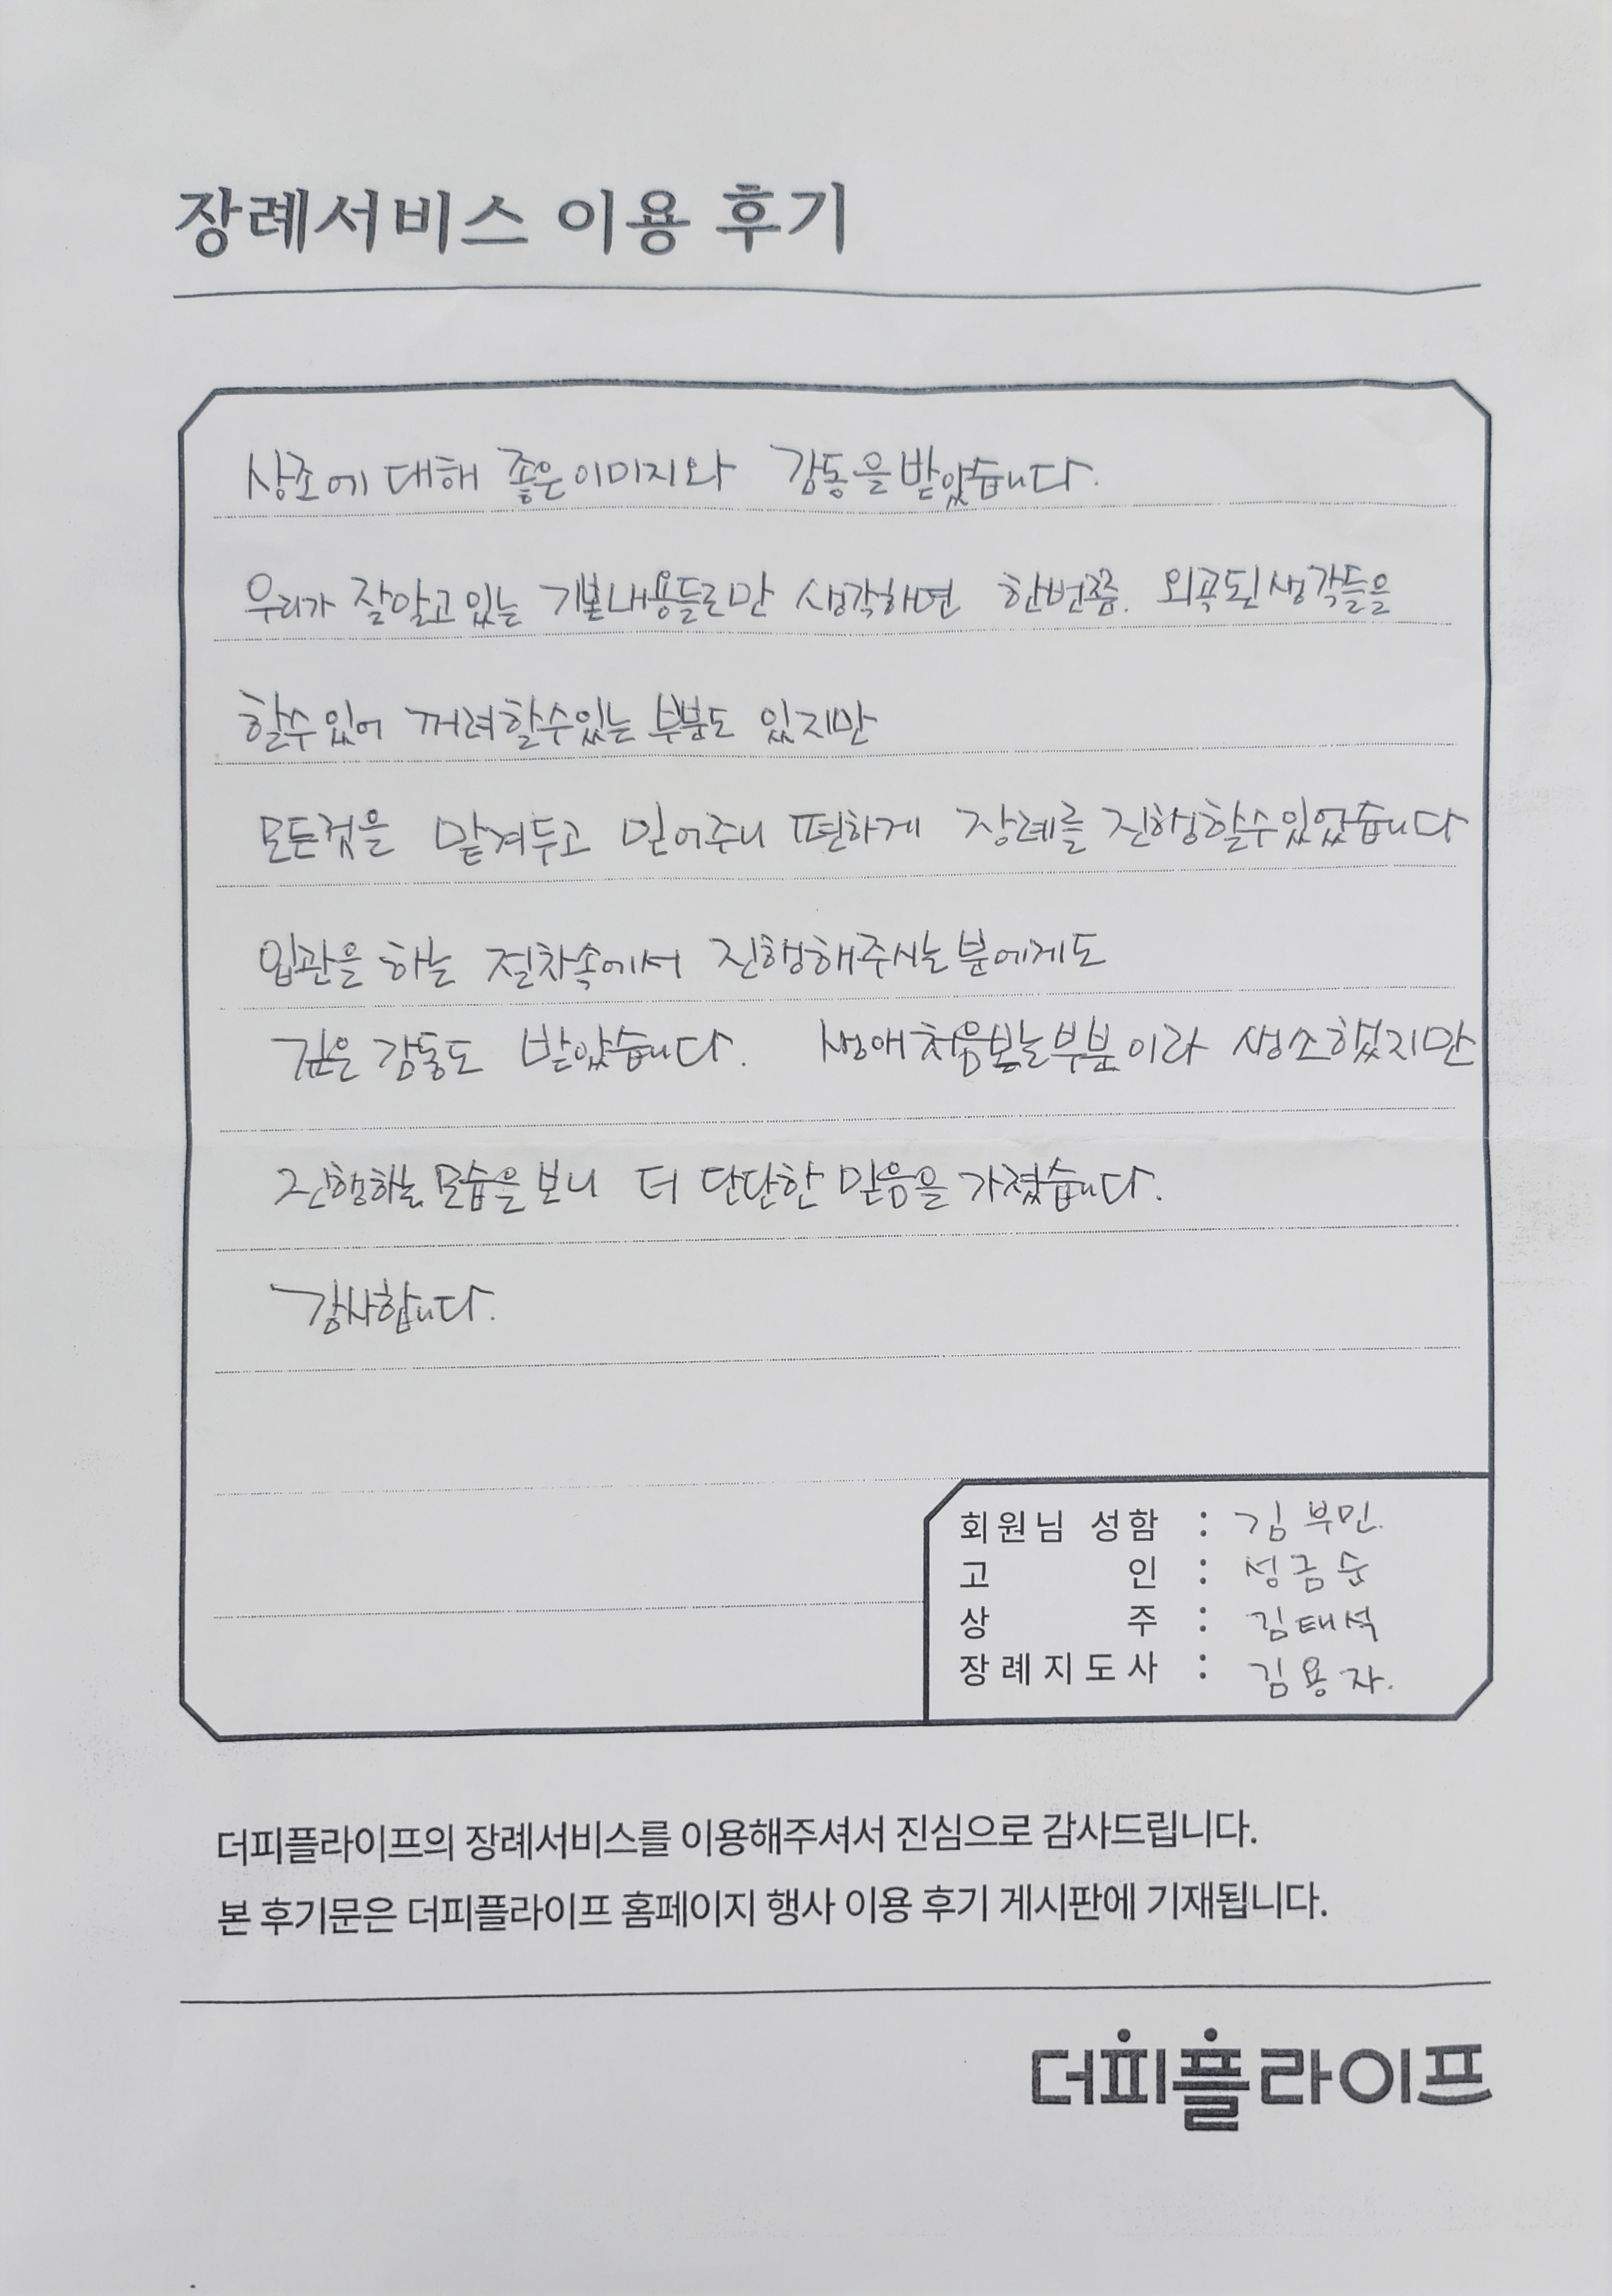 장례서비스 이용 후기
상조에 대해 좋은이미지와 감동을받았습니다.
우리가 잘알고있는 기본내용들로만 생각하면 한번쯤. 외곡된생각들을
할수있어 꺼려할수있는 부분도 있지만
모든것을 맡겨두고 믿어주니 편하게 장례를 진행할수있었습니다
입관을 하는 절차속에서 진행해주시는분에게도
깊은 감동도 받았습니다. 생애처음보는부분이라 생소했지만
진행하는모습을보니 더 단단한 믿음을가졌습니다.
감사합니다.
회원님 성함 : 김부민.
고 인 : 성금순
상 주 : 김태석
장례지도사 : 김용자.
더피플라이프의 장례서비스를 이용해주셔서 진심으로 감사드립니다.
본 후기문은 더피플라이프 홈페이지 행사 이용 후기 게시판에 기재됩니다.
더피플라이프